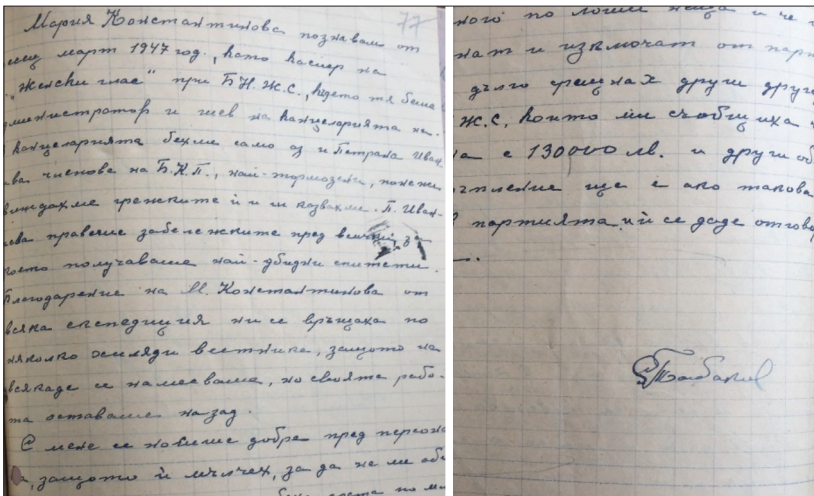 77
Мария Константинова познавам от
месец март 1947 год., като касиер на
"Женски глас" при Б.Н.Ж.С., където тя беше
администратор и шеф на канцеларията ни.
В канцеларията бехме само аз и Петрана Иван-
членове на Б.К.П., най-тормозени, понеже
виждахме грешките ѝ и ги казвахме. П. Иван-
правеше забележките пред всички, за
което получаваше най-обидни епитети.
Благодарение на М. Константинова от
всяка експедиция ни се връщаха по
няколко хиляди вестника, защото на
всякаде се намесваше, но своята рабо-
та оставаше назад.
С мене се новише добре пред персона
, защото ѝ мълчех, за да не ми
ного по лоши неща и че
и изключат от парт
дълго срещнах други друга
Ж.С, които ми съобщиха
с 130000 лв. и други об
ще е ако такова
партията ѝ се даде отгово